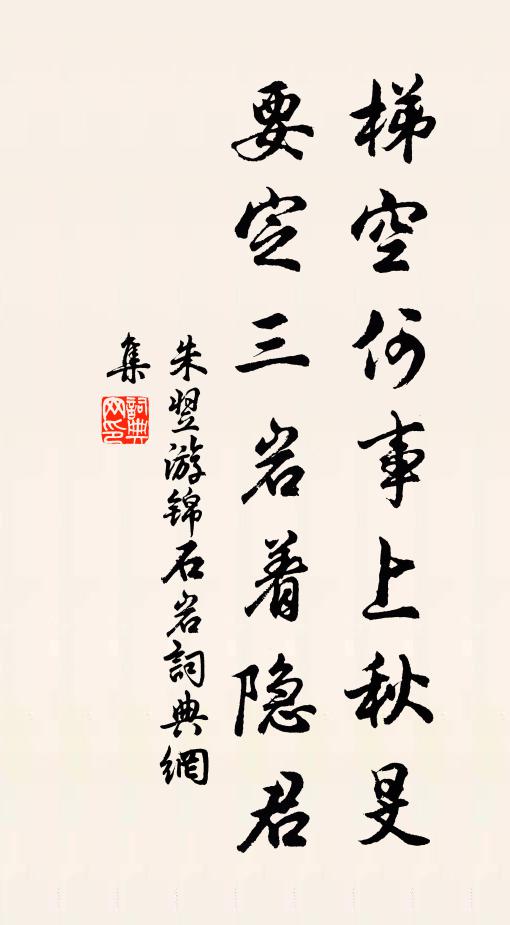 梯空何事上秋旻
要定三岩着隐君
朱翌游锦石岩詞典網
集
詞典
网印